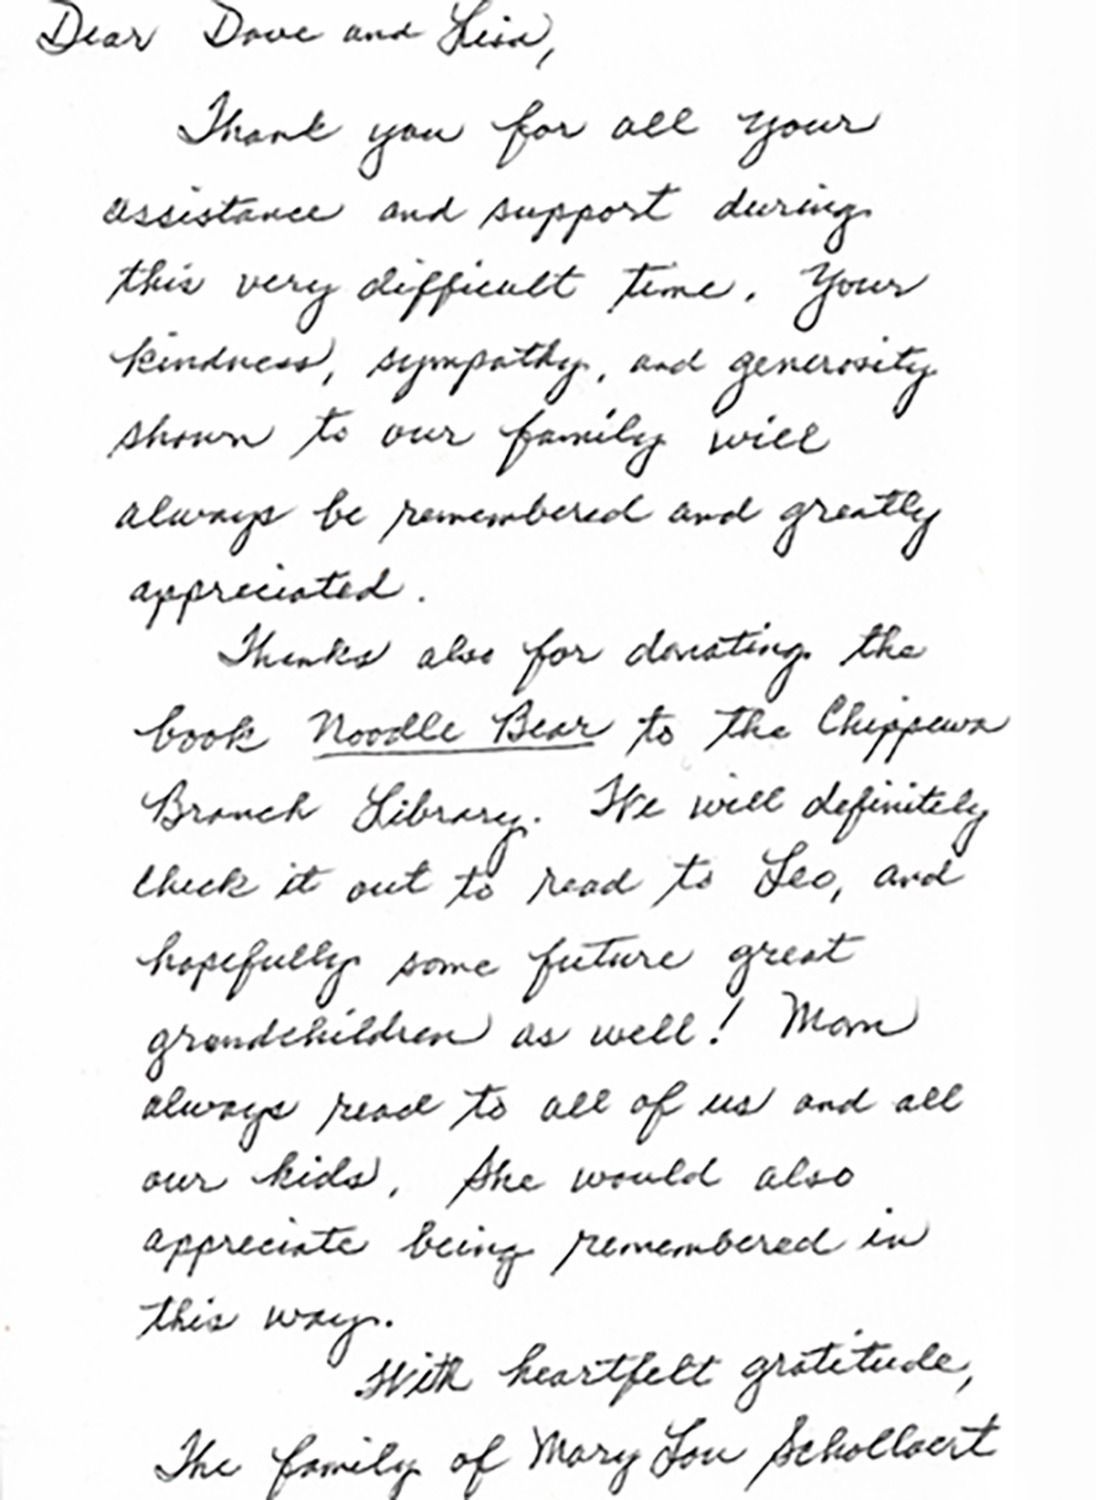 Dear Dave and Lisa,
Thank you for all your
assistance and support during
this very difficult time. Your
kindness, sympathy, and generosity
shown to our family will
always be remembered and greatly
appreciated.
Thanks also for donating the
book Noodle Bear to the Chippewa
Branch Library. We will definitely
check it out to read to Leo, and
hopefully some future great
grandchildren as well! Mom
always read to all of us and all
our kids. She would also
appreciate being remembered in
this way.
With heartfelt gratitude,
The family of Mary Lou Schollaert